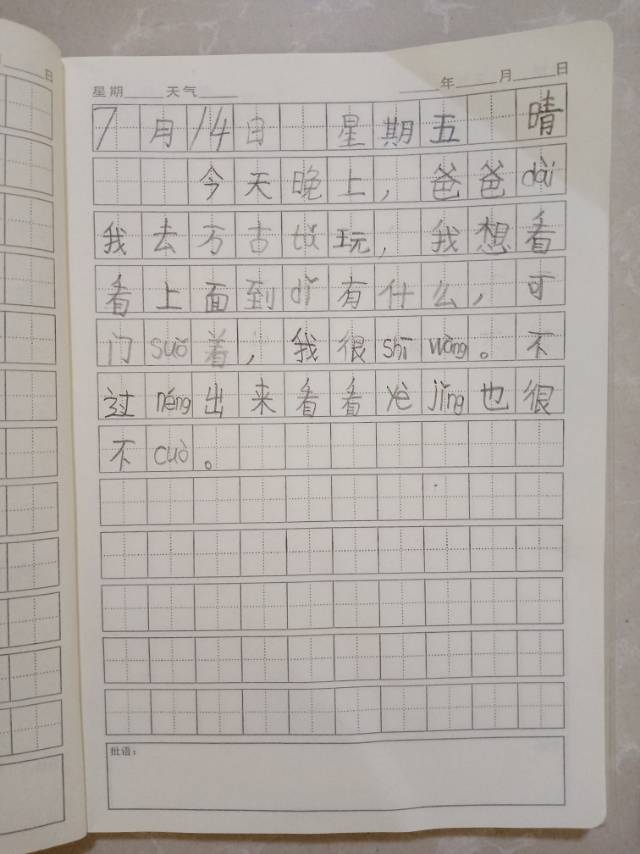 日
星期 天气 年 月 日
7月14日 星期五 晴
今天晚上，爸爸dài
我去万古tǎ玩，我想看
看上面到dǐ有什么，可
门suǒ着，我很shī wàng。不
过néng出来看看yè jǐng也很
不cuò。
批语：